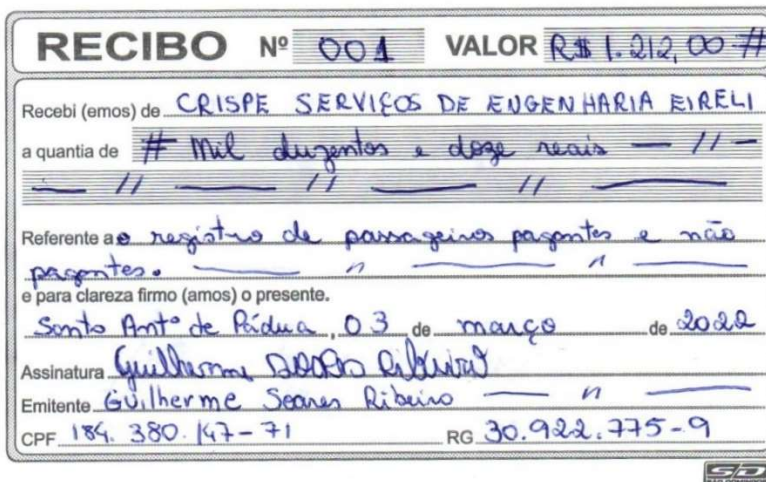 RECIBO Nº 001 VALOR R$ 1.212,00 #
Recebi (emos) de CRISPE SERVIÇOS DE ENGENHARIA EIRELI
a quantia de # Mil duzentos e doze reais — // —
— // — // — // —
Referente ao registro de passageiros pagantes e não
pagantes. — " — " —
e para clareza firmo (amos) o presente.
Santo Antº de Pádua, 03 de março de 2022
Assinatura Guilherme Soares Ribeiro
Emitente Guilherme Soares Ribeiro — " —
CPF 184.380.147-71 RG 30.922.775-9
SD